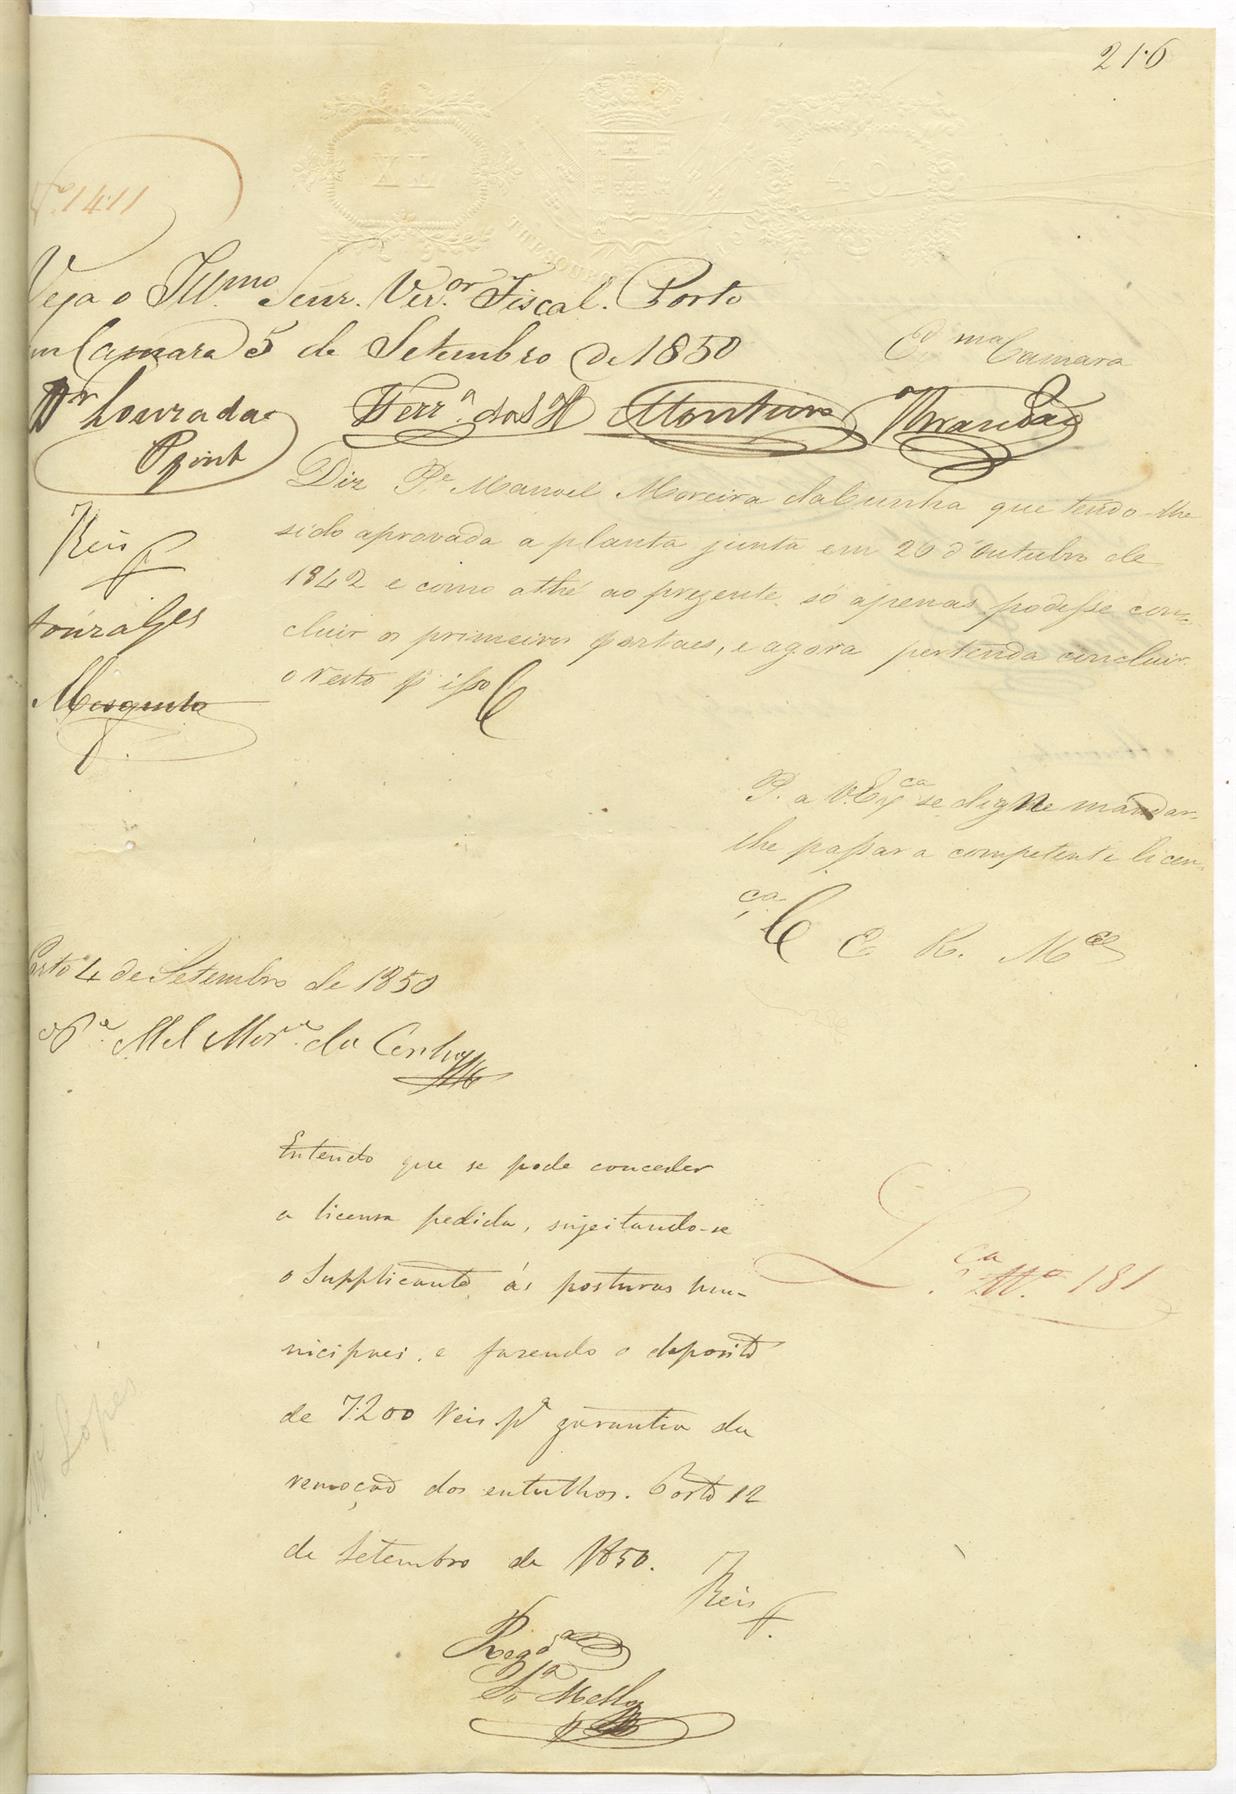 216
1411
XL
40
Veja o Ill.mo Senr. Ver.or Fiscal. Porto
em Camara 5 de Setembro de 1850
Ex.ma Camara
Dr Lourada
Ferr.a dos
Montur
Pgint
Diz P.e Manoel Moreira da Cunha que tendo-lhe
sido aprovada a planta junta em 20 d'Outubro de
1842 e como athé ao prezente só apenas podesse con-
cluir os primeiros portaes, e agora pertenda concluir
o resto p isso
Reis
Mesquita
P. a V. Exca se digne mandar-
lhe passar a competente licen-
ça
E R. M.ce
Porto 4 de Setembro de 1850
o P.e Mel Mor.a da Cunha
Entendo que se pode conceder
a licensa pedida, sugeitando-se
o Supplicante, ás posturas mu-
nicipaes, e fazendo o deposito
de 7200 reis p.a garantia da
remoção dos entulhos. Porto 12
de Setembro de 1850.
Reis
L.ça N.o 181
Reg.da
Mello
Lopes